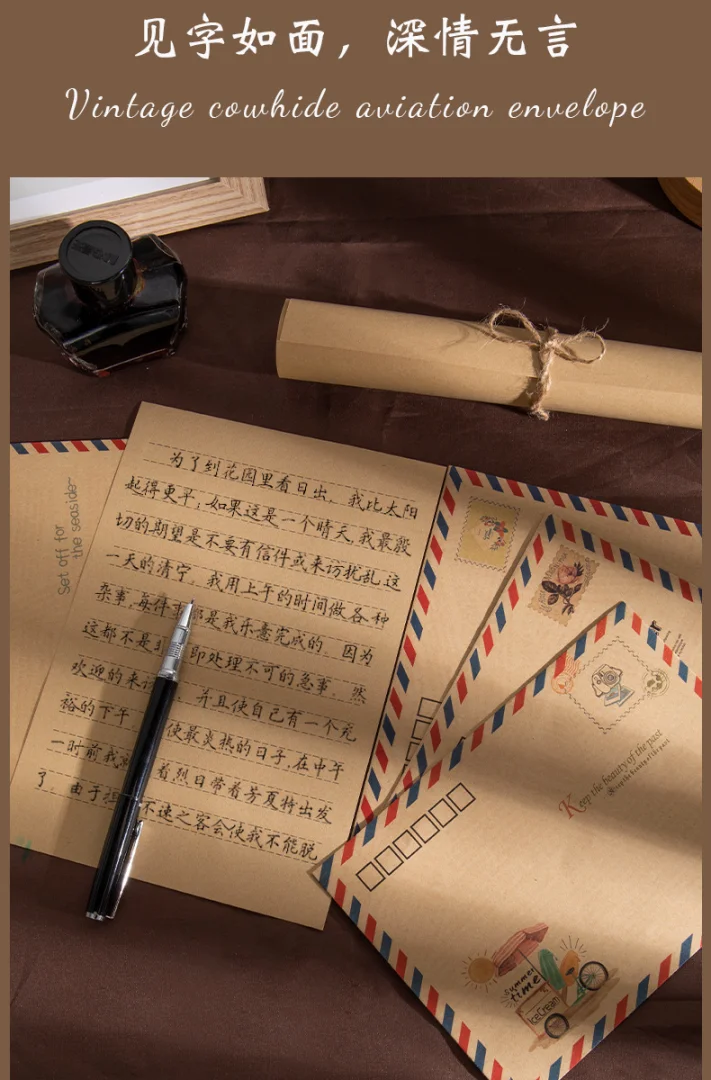 见字如面，深情无言
Vintage cowhide aviation envelope
Set off for
the seaside
为了到花园里看日出，我比太阳
起得更早；如果这是一个晴天，我最殷
切的期望是不要有信件或来访扰乱这
一天的清宁。我用上午的时间做各种
杂事，每件 都是我乐意完成的。因为
这都不是 即处理不可的急事。然
欢迎的来 并且使自己有一个充
裕的下午 使最炎热的日子，在中午
一时前我 着烈日带着芳夏特出发
了。由于 不速之客会使我不能脱
Keep the beauty of the past
summer
time
IceCream